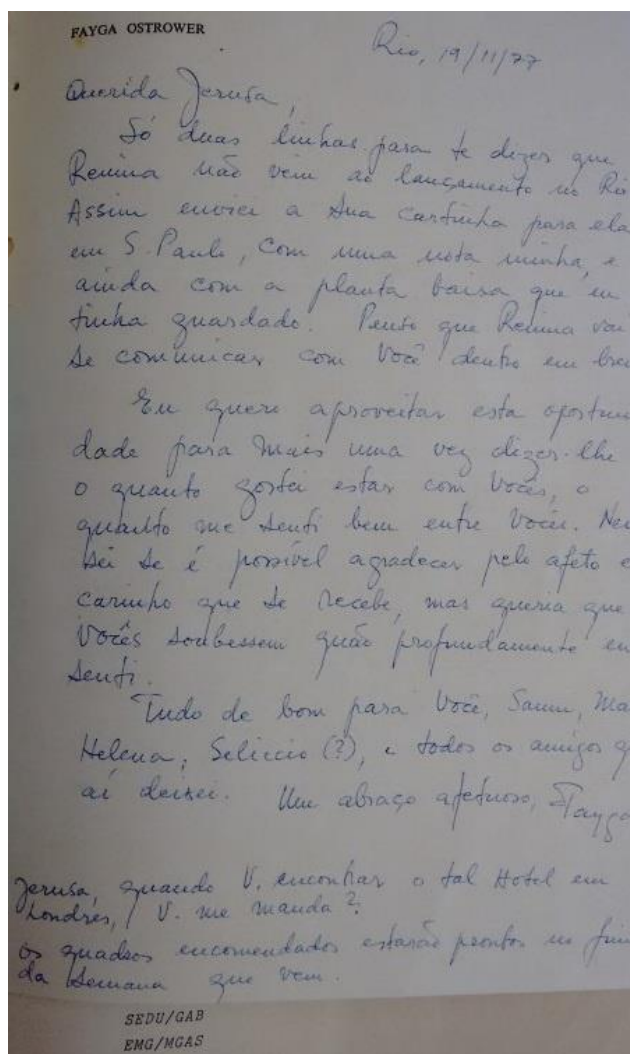 FAYGA OSTROWER
Rio, 19/11/77
Querida Jerusa,
Só duas linhas para te dizer que
Renina não vem ao lançamento no Rio
Assim enviei a sua cartinha para ela
em S. Paulo, com uma nota minha, e
ainda com a planta baixa que eu
tinha guardado. Penso que Renina vai
se comunicar com você dentro em
Eu quero aproveitar esta oportuni
dade para mais uma vez dizer-lhe
o quanto gostei estar com vocês, o
quanto me senti bem entre vocês.
sei se é possível agradecer pelo afeto e
carinho que se recebe, mas queria que
vocês soubessem quão profundamente eu
senti.
Tudo de bom para você,
Helena, (?), e todos os amigos
aí deixei. Um abraço afetuoso, Fayga
Jerusa, quando V. encontrar o tal Hotel em
Londres, V. me manda?
Os quadros encomendados estarão prontos no
da semana que vem.
SEDU/GAB
EMG/MGAS